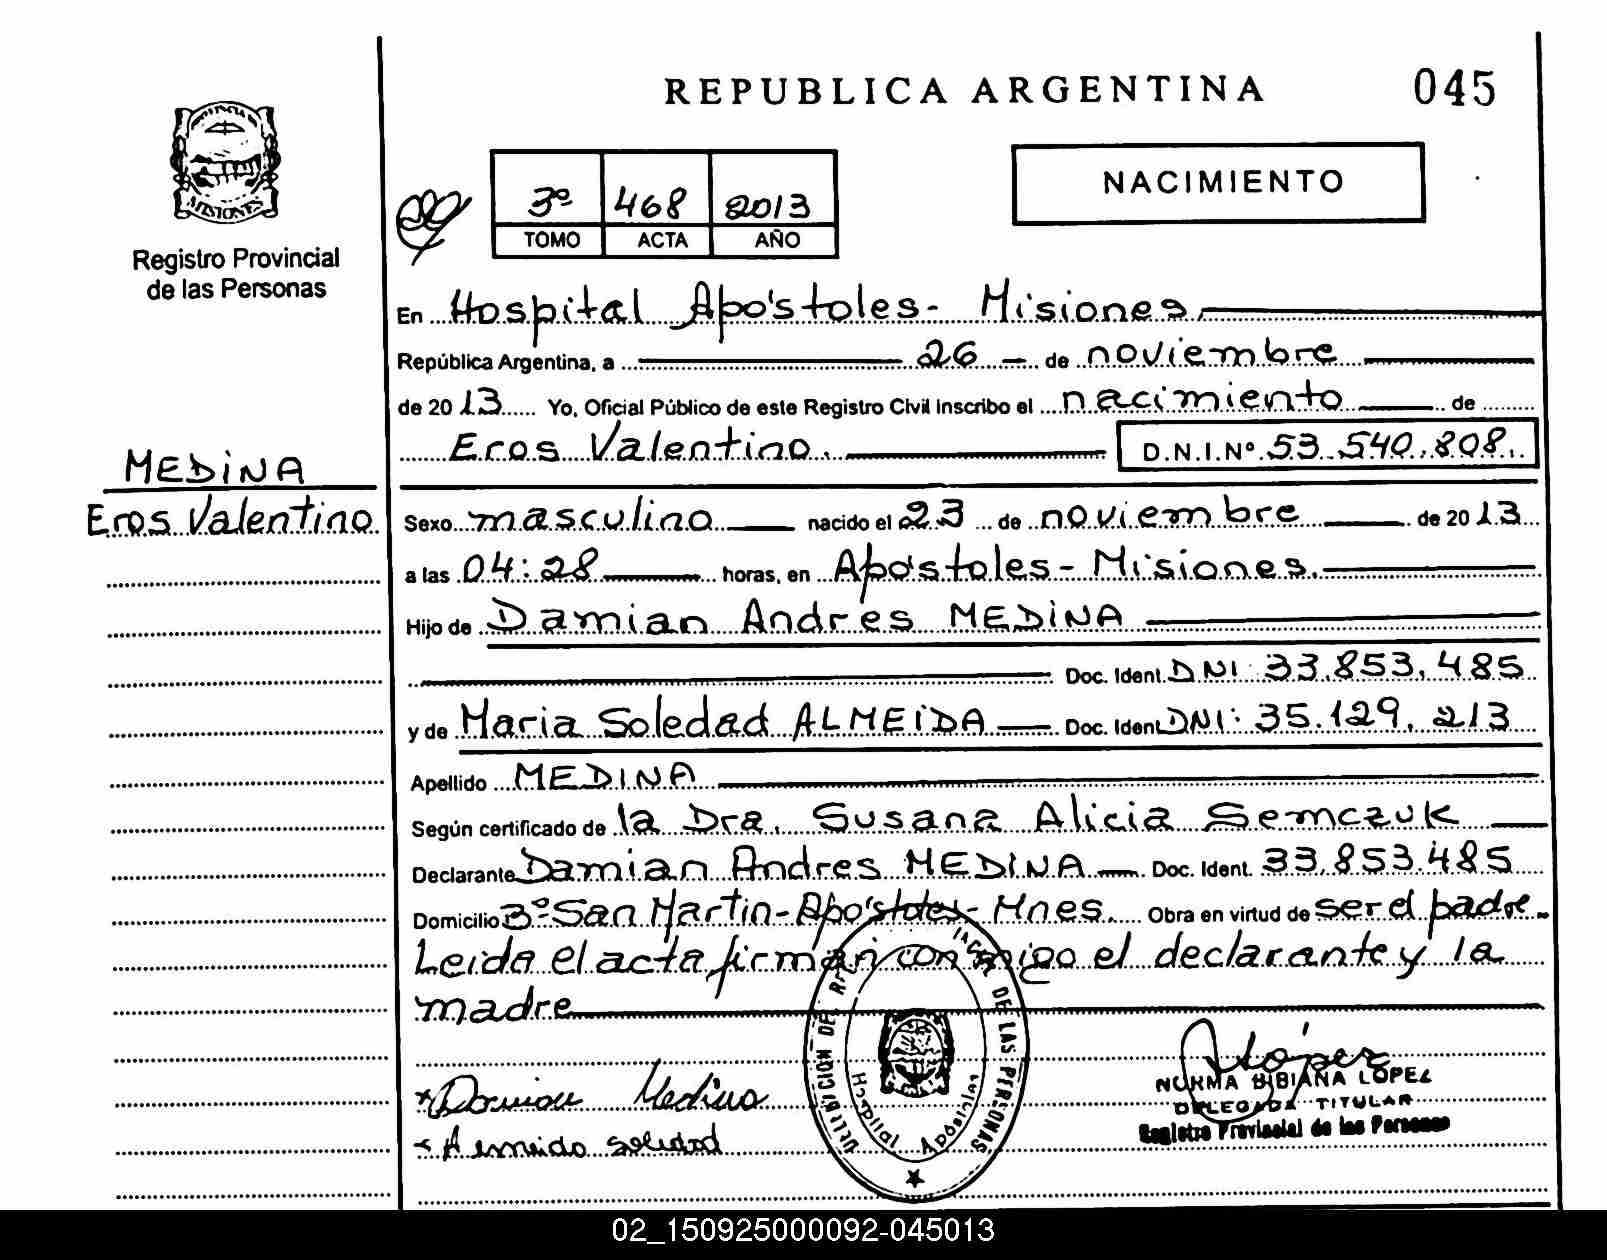 REPUBLICA ARGENTINA 045
MISIONES
Registro Provincial
de las Personas
3º 468 2013
TOMO ACTA AÑO
NACIMIENTO
En Hospital Apóstoles - Misiones
República Argentina, a 26 de noviembre
de 2013 Yo, Oficial Público de este Registro Civil Inscribo el nacimiento de
Eros Valentino. D.N.I.Nº 53.540.808.
MEDINA
Eros Valentino
Sexo masculino nacido el 23 de noviembre de 2013
a las 04:28 horas, en Apóstoles - Misiones.
Hijo de Damian Andres MEDINA
Doc. Ident. DNI: 33.853.485
y de Maria Soledad ALMEIDA Doc. Ident. DNI: 35.129.213
Apellido MEDINA
Según certificado de la Dra. Susana Alicia Semczuk
Declarante Damian Andres MEDINA Doc. Ident. 33.853.485
Domicilio 3º San Martin - Apóstoles - Mnes. Obra en virtud de ser el padre.
Leida el acta firman conmigo el declarante y la
madre
Damian Medina
Almeida Soledad
DE LAS PERSONAS
Hospital Apóstoles
López
NORMA BIBIANA LOPEZ
DELEGADA TITULAR
Registro Provincial de las Personas
02_150925000092-045013